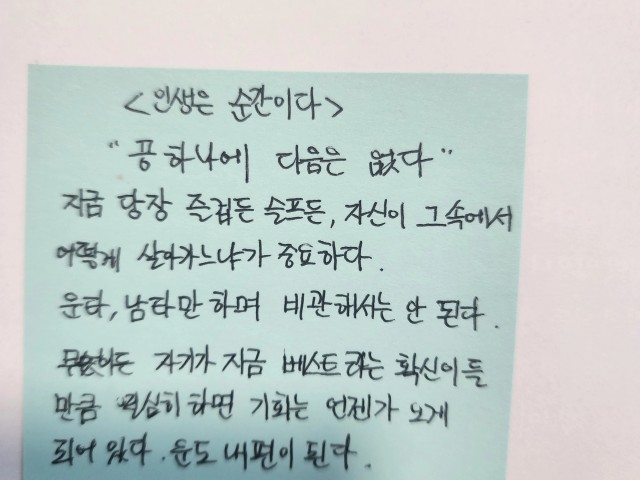 <인생은 순간이다>
"공 하나에 다음은 없다"
지금 당장 즐겁든 슬프든, 자신이 그속에서
어떻게 살아가느냐가 중요하다.
운타, 남타만 하며 비관해서는 안 된다.
자기가 지금 베스트라는 확신이 들
만큼 열심히 하면 기회는 언젠가 오게
되어 있다. 운도 내편이 된다.